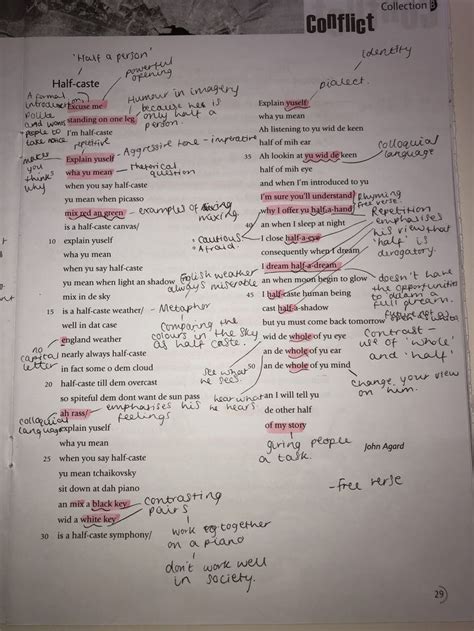 Collection B
Conflict
'Half a person'
Identity
powerful opening
Half-caste
A formal introduction
Polite and wants people to take notice
Humour in imagery
because he is only half a person.
dialect.
Excuse me
standing on one leg
I'm half-caste
repetitive
Aggressive tone - imperative
makes you think why
Explain yuself
wha yu mean
Rhetorical question
when you say half-caste
yu mean when picasso
mix red an green - examples of mixing
is a half-caste canvas/
10 explain yuself
wha yu mean
when yu say half-caste
yu mean when light an shadow
mix in de sky
English weather always miserable
15 is a half-caste weather/ - Metaphor
well in dat case
Comparing the colours in the sky as half caste.
no capital letter
england weather
nearly always half-caste
in fact some o dem cloud
20 half-caste till dem overcast
so spiteful dem dont want de sun pass
ah rass/
emphasises his feelings
colloquial language
explain yuself
wha yu mean
25 when yu say half-caste
yu mean tchaikovsky
sit down at dah piano
an mix a black key
wid a white key
30 is a half-caste symphony/
contrasting pairs
work together on a piano
don't work well in society.
Explain yuself
wha yu mean
Ah listening to yu wid de keen
half of mih ear
35 Ah lookin at yu wid de keen
half of mih eye
colloquial language
and when I'm introduced to yu
I'm sure you'll understand
why I offer yu half-a-hand
Rhyming
free verse.
40 an when I sleep at night
I close half-a-eye
cautious
Afraid.
Repetition emphasises his view that 'half' is derogatory.
consequently when I dream
I dream half-a-dream
an when moon begin to glow
doesn't have the opportunities to dream a full dream.
45 I half-caste human being
cast half-a-shadow
but yu must come back tomorrow
wid de whole of yu eye
an de whole of yu ear
50 an de whole of yu mind
contrast - use of 'whole' and 'half'
see what he sees.
hear what he hears
change your view on him.
an I will tell yu
de other half
of my story
giving people a task.
John Agard
- free verse
29